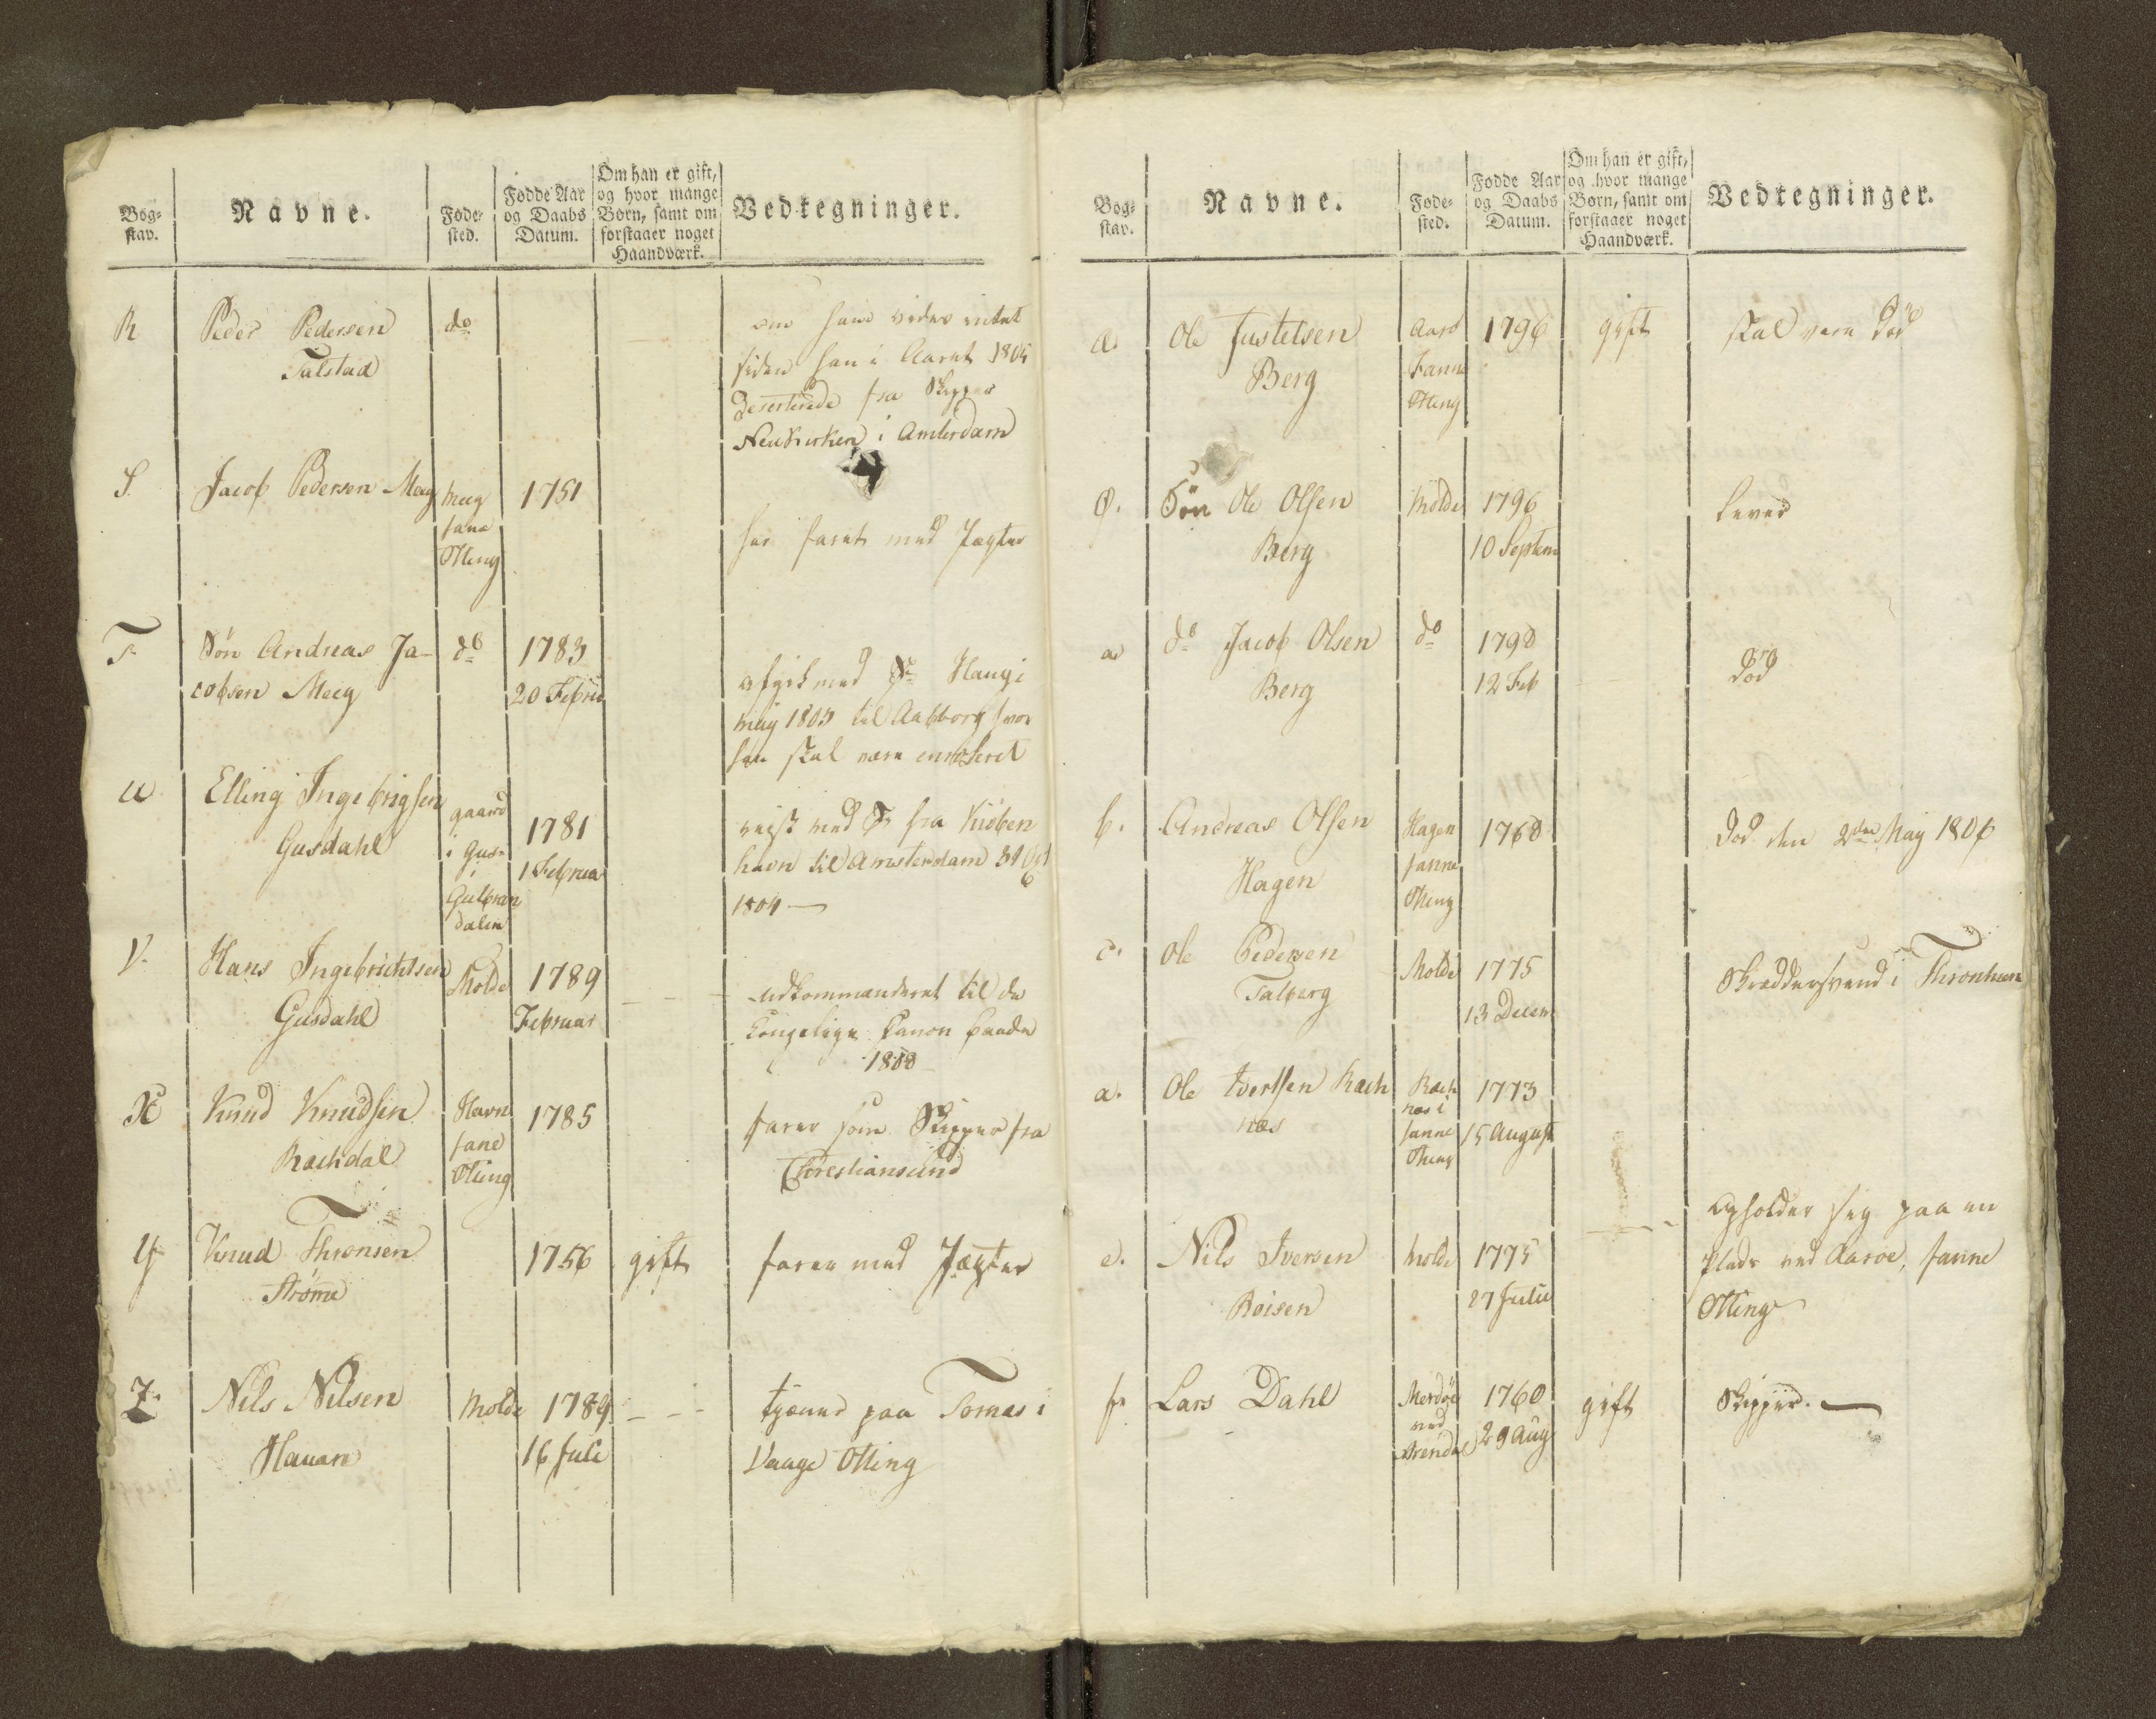 Bog-
stav.
Navne.
Føde-
sted.
Fødde Aar
og Daabs
Datum.
Om han er gift,
og hvor mange
Børn, samt om
forstaaer noget
Haandværk.
Vedtegninger.
R
Peder Pedersen
Talstad
do
om ham vides intet
siden han i Aaret 1805
Deserterede fra Skipper
Neukirken i Amterdam
S.
Jacob Pedersen Meeg
Meeg
fane
Otting
1751
har faret med Jægter
T.
Søn Andreas Ja-
cobsen Meeg
do
1783
20 Febru
afgik med Sr Haugi
May 1803 til Aalborg hvor
han skal være enroleret
U
Elling Ingebrigsen
Gusdahl
gaard
i Gus-
Gulbran
dalen
1781
1 Februa
reist med fra Kiøben
havn til Amsterdam 31 Oct
1804 —
V.
Hans Ingebrichtsen
Gusdahl
Molde
1789
Februar
udkommanderet til de
Kongelige Canon baade
1808
X
Knud Knudsen
Rachdal
Havn
fane
Otting
1785
farer som Skipper fra
Christiansund
Y
Knud Thronsen
Strøme
1756
gift
farer med Jægter
Z.
Nils Nilsen
Hauan
Molde
1789
16 Juli
tjæner paa Tornes i
Vaage Otting
Bog-
stav.
Navne.
Føde-
sted.
Fødde Aar
og Daabs
Datum.
Om han er gift,
og hvor mange
Børn, samt om
forstaaer noget
Haandværk.
Vedtegninger.
Ole Justelsen
Berg
Aarø
Fanne
Otting
1796
gift
skal være Død
Ø.
Søn Ole Olsen
Berg
Molde
1796
10 Septem
Lever
a
do Jacob Olsen
Berg
do
1798
12 Feb
død
b.
Andreas Olsen
Hagen
Hagen
fanne
Otting
1768
Død den 2den May 1806
c.
Ole Pedersen
Talberg
Molde
1775
13 Decem
Skræddersvend i Thronhiem
Ole Iversen Rach
næs
Rach
næs i
fanne
Otting
1773
15 August
e.
Nils Iversen
Roisen
Molde
1775
27 Julii
Opholder sig paa en
Plads ved Aarøe, fanne
Otting
f.
Lars Dahl
Merdøe
ved
Arendal
1760
29 Aug
gift
Skipper. —